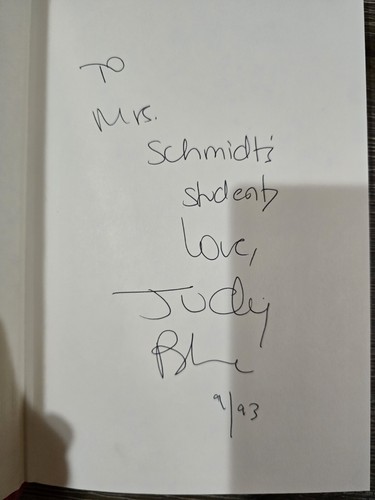 To
Mrs.
Schmidt's
students
Love,
Judy
Blume
9/93